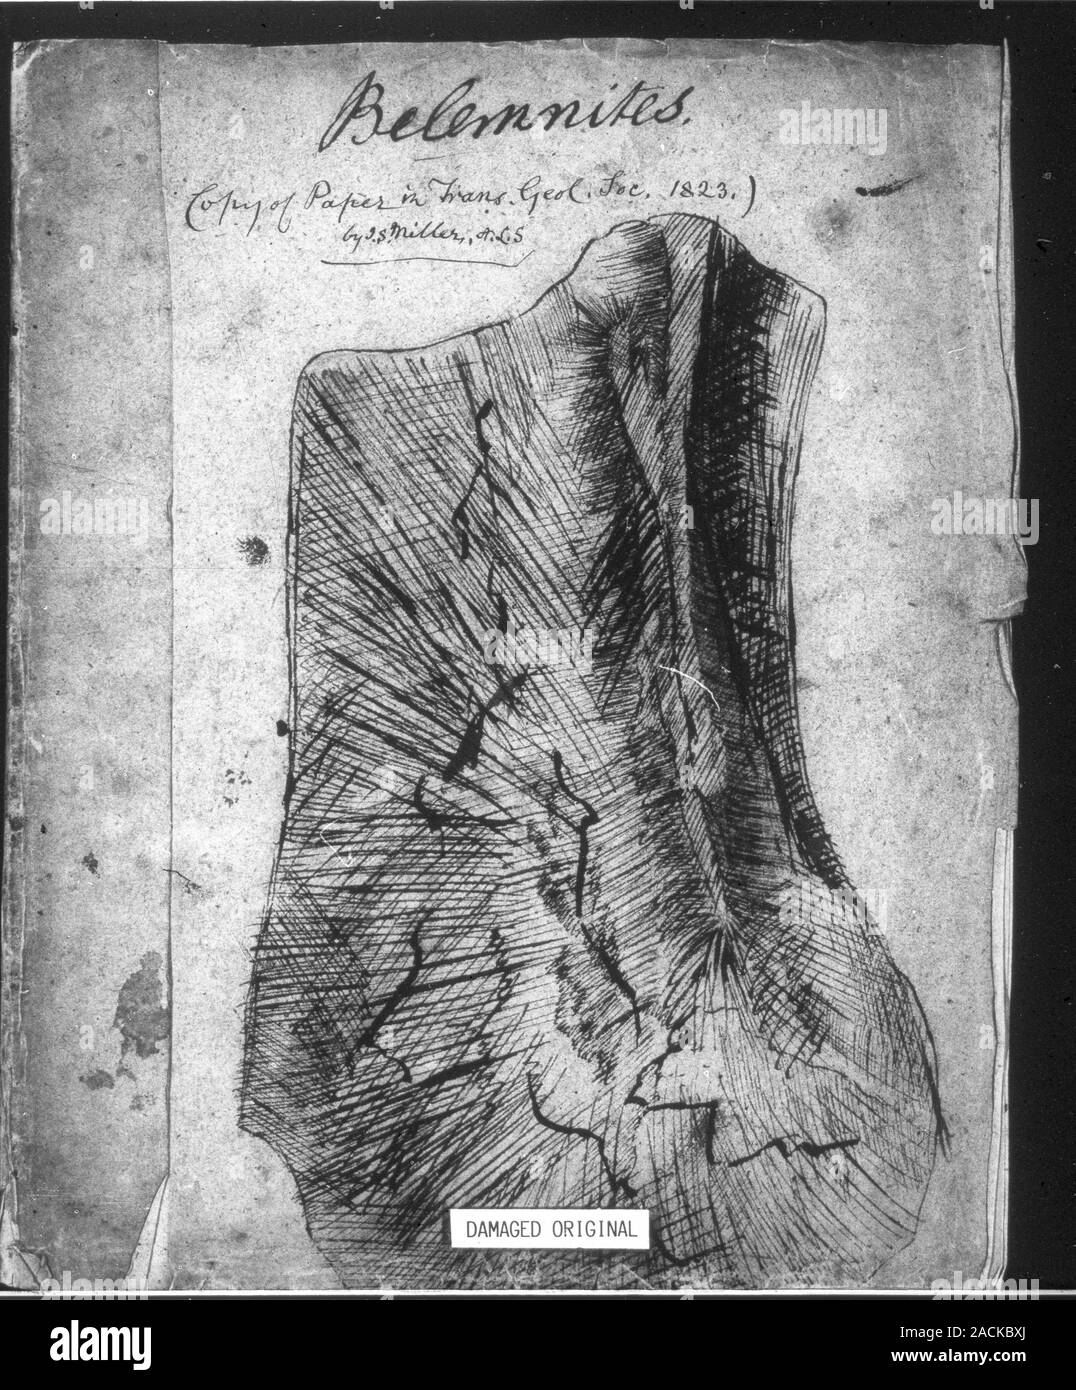 Belemnites.
(Copy of Paper in Trans. Geol. Soc. 1823.)
by J.S. Miller, A.L.S
DAMAGED ORIGINAL
alamy
alamy
alamy
alamy
alamy
alamy
alamy
Image ID: 2ACKBXJ
www.alamy.com